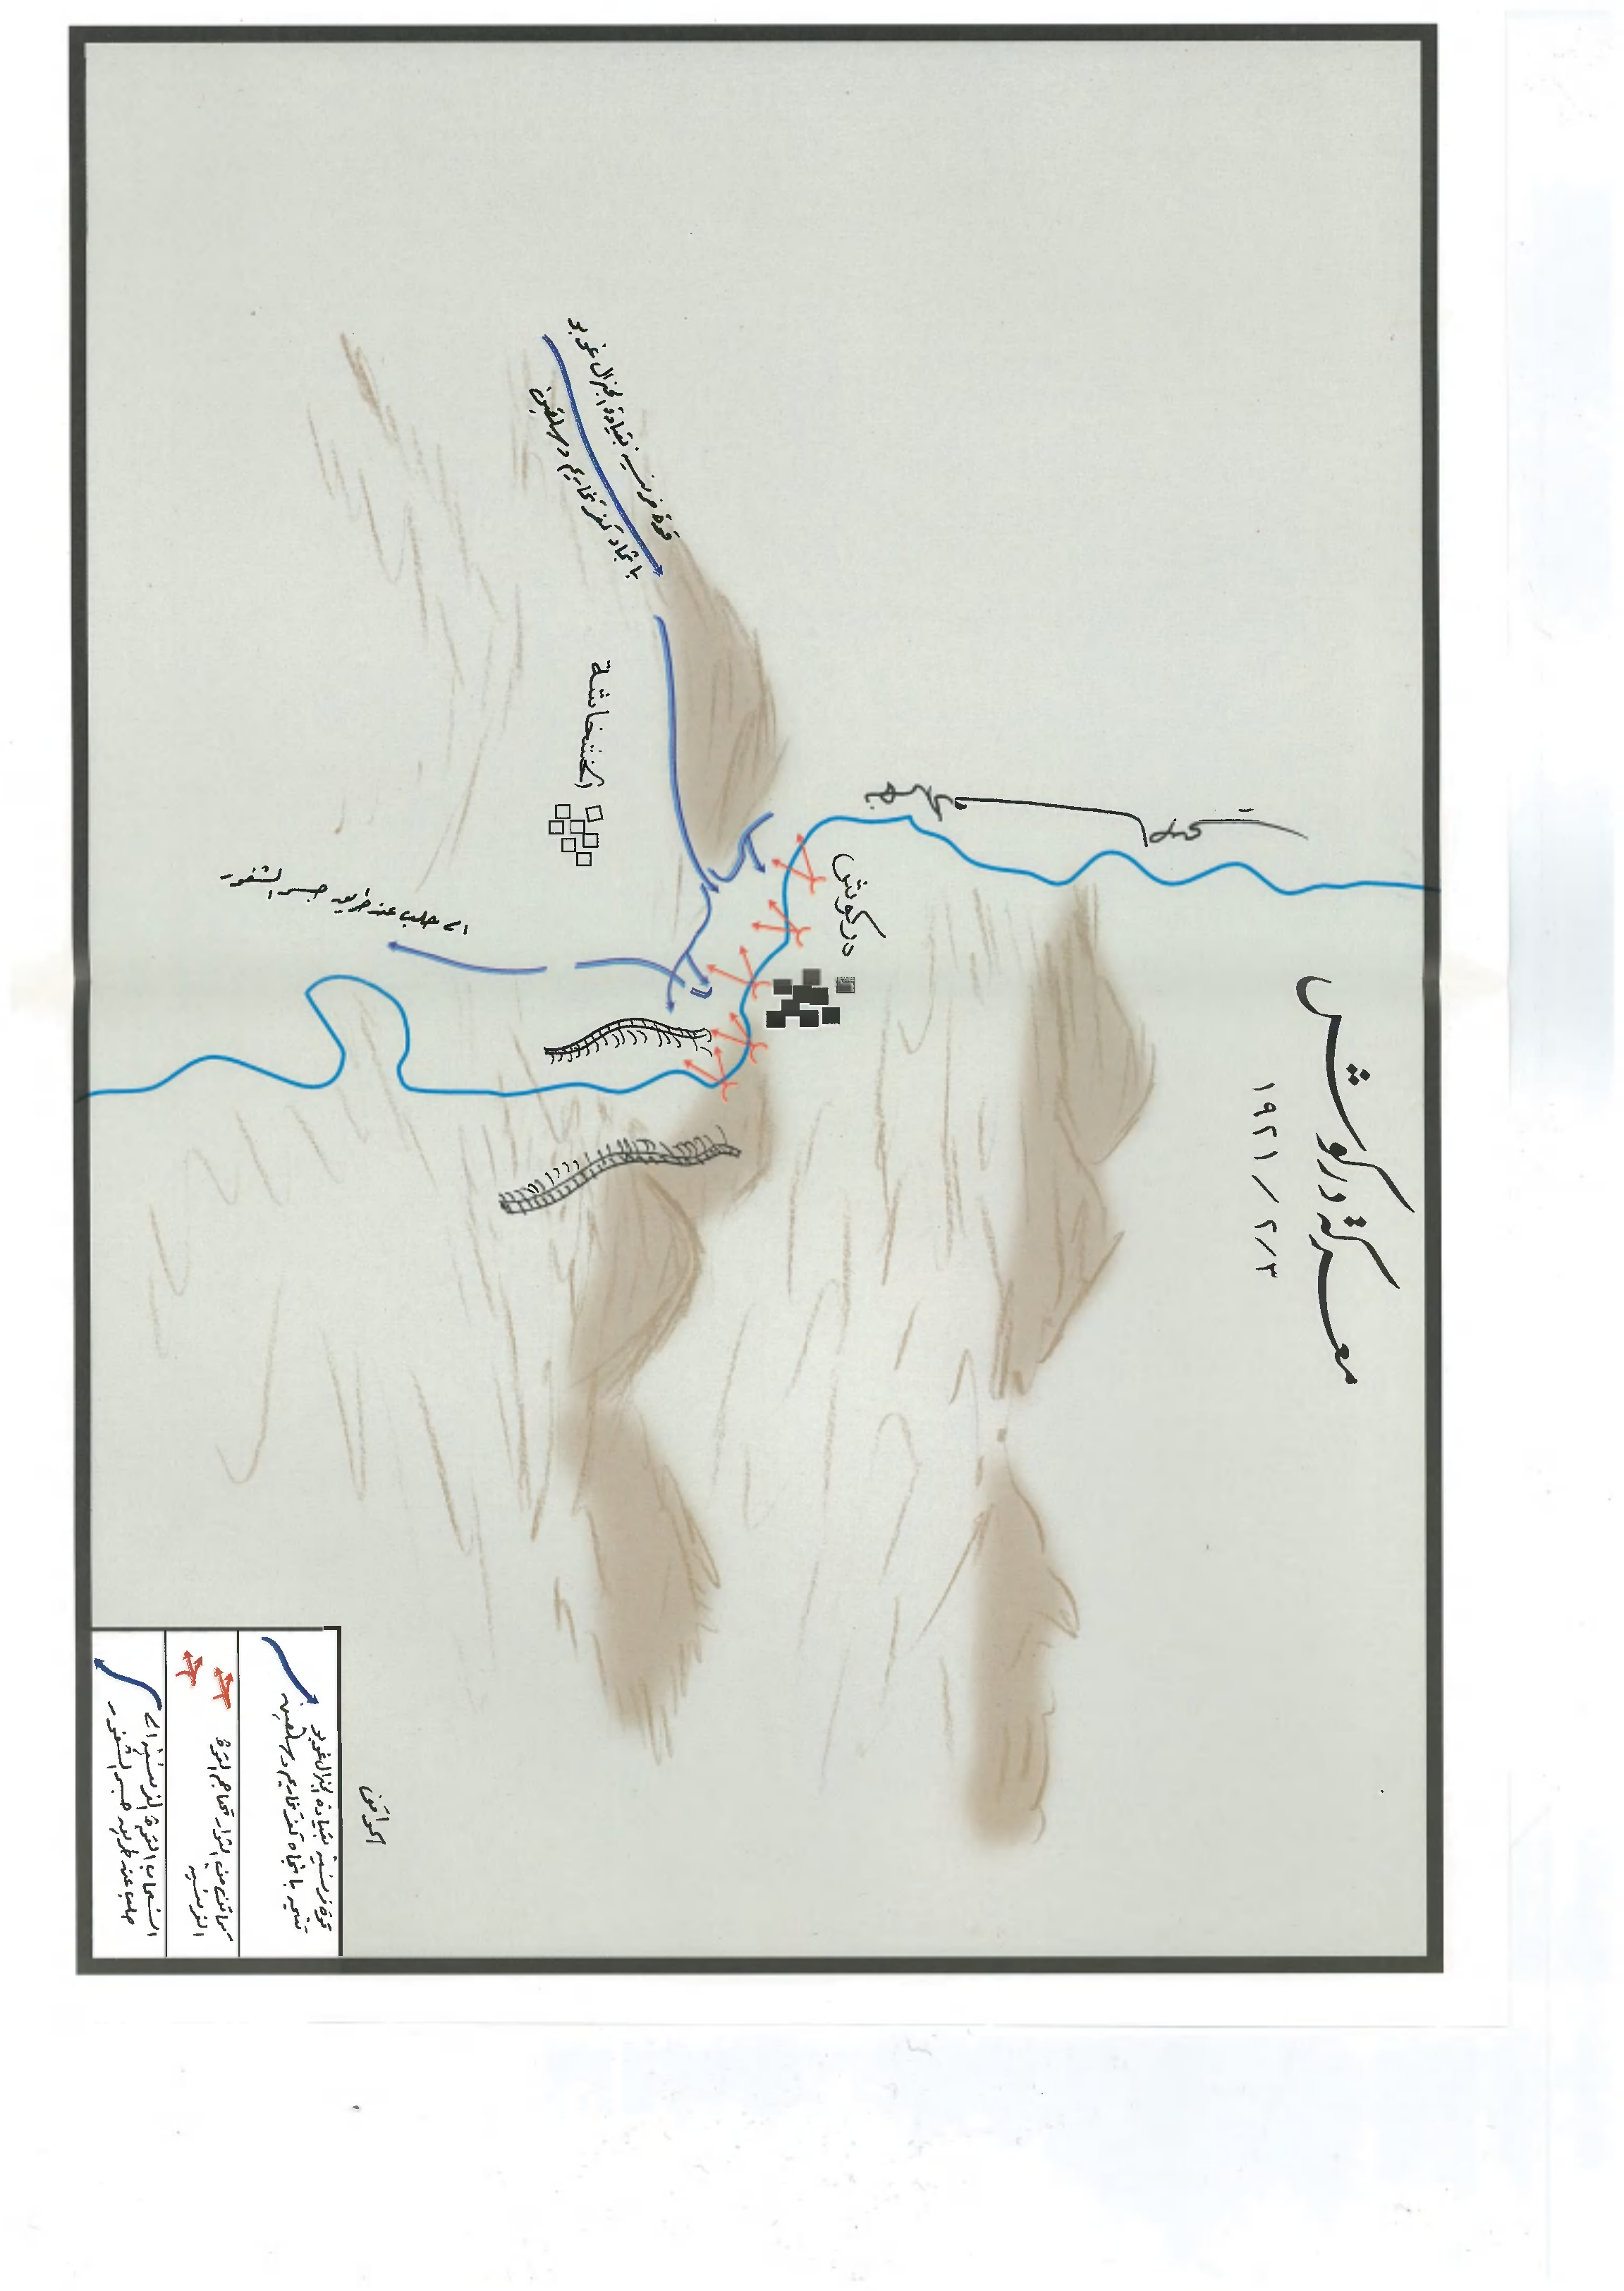 معركة دركوش
١٩٢١/٢/٣
دركوش
قوة فرنسية بقيادة الجنرال غوبو
باتجاه كفر تخاريم وسلقين
الخشخاشة
الى حلب عن طريق جسر الشغور
قوة فرنسية بقيادة الجنرال غوبو
تتجه باتجاه كفر تخاريم وسلقين
كمائن من الثوار تهاجم القوة
الفرنسية
انسحاب القوة الفرنسية الى
حلب عن طريق جسر الشغور